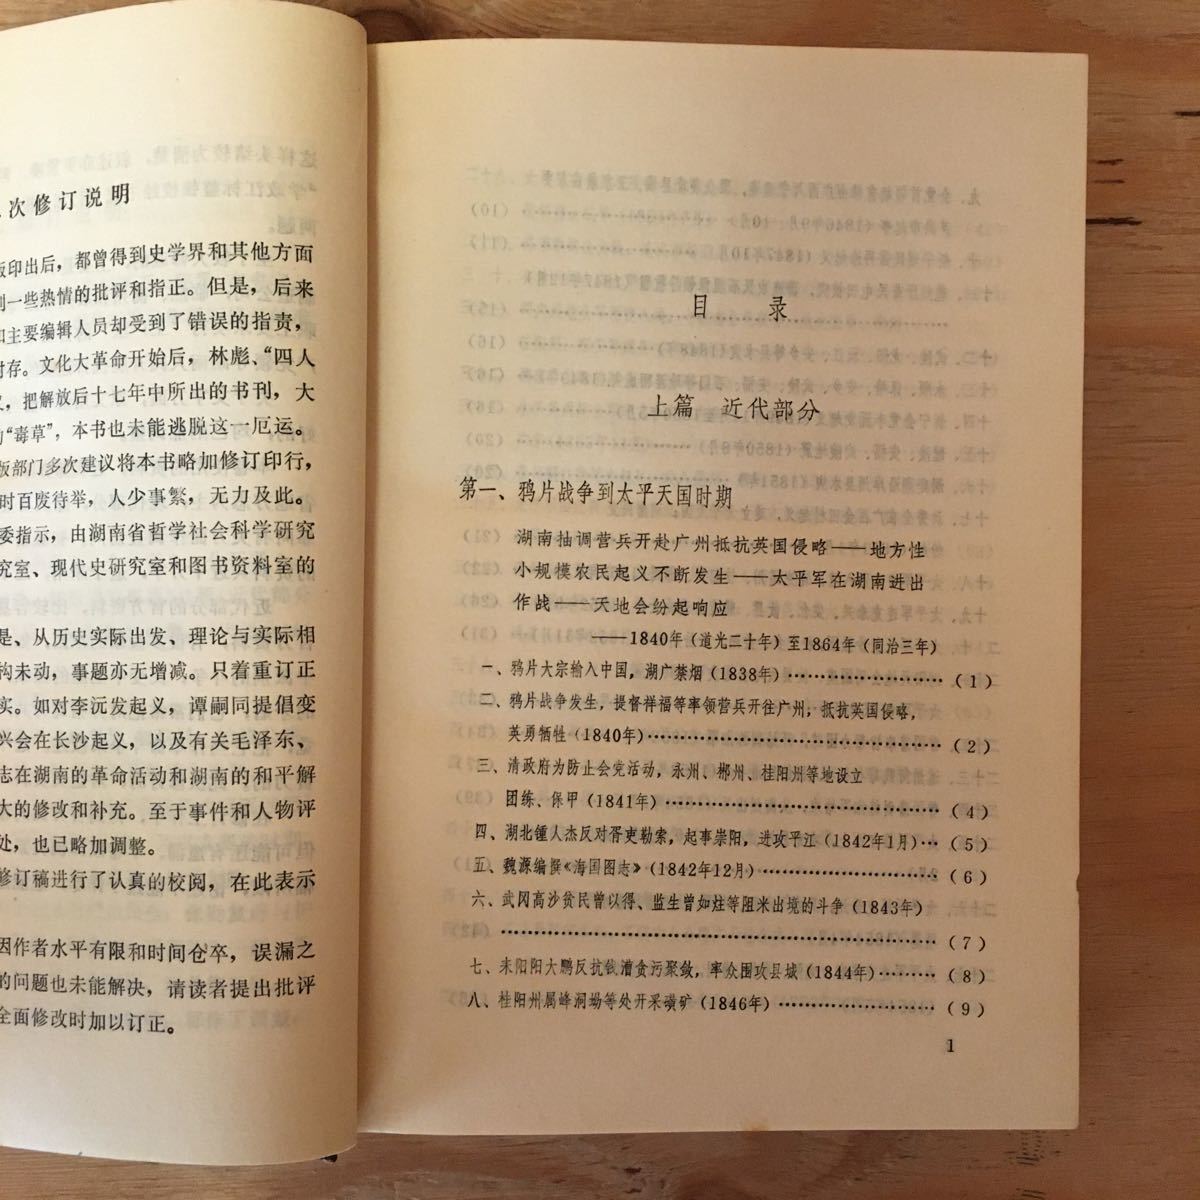 次修订说明
版印出后，都曾得到史学界和其他方面
到一些热情的批评和指正。但是，后来
和主要编辑人员却受到了错误的指责，
时存。文化大革命开始后，林彪、“四人
，把解放后十七年中所出的书刊，大
的“毒草”，本书也未能逃脱这一厄运。
版部门多次建议将本书略加修订印行，
时百废待举，人少事繁，无力及此。
委指示，由湖南省哲学社会科学研究
究室、现代史研究室和图书资料室的
是、从历史实际出发、理论与实际相
构未动，事题亦无增减。只着重订正
实。如对李沅发起义，谭嗣同提倡变
兴会在长沙起义，以及有关毛泽东、
志在湖南的革命活动和湖南的和平解
大的修改和补充。至于事件和人物评
处，也已略加调整。
修订稿进行了认真的校阅，在此表示
因作者水平有限和时间仓卒，误漏之
的问题也未能解决，请读者提出批评
全面修改时加以订正。
目 录
上篇 近代部分
第一、鸦片战争到太平天国时期
湖南抽调营兵开赴广州抵抗英国侵略——地方性
小规模农民起义不断发生——太平军在湖南进出
作战——天地会纷起响应
——1840年（道光二十年）至1864年（同治三年）
一、鸦片大宗输入中国，湖广禁烟（1838年）……………………（1）
二、鸦片战争发生，提督祥福等率领营兵开往广州，抵抗英国侵略，
英勇牺牲（1840年）……………………………………（2）
三、清政府为防止会党活动，永州、郴州、桂阳州等地设立
团练、保甲（1841年）…………………………………（4）
四、湖北锺人杰反对胥吏勒索，起事崇阳，进攻平江（1842年1月）…（5）
五、魏源编撰《海国图志》（1842年12月）……………………（6）
六、武冈高沙贫民曾以得、监生曾如炷等阻米出境的斗争（1843年）
……………………………………………………………（7）
七、耒阳阳大鹏反抗钱漕贪污聚敛，率众围攻县城（1844年）………（8）
八、桂阳州属峰洞坳等处开采磺矿（1846年）……………………（9）
1